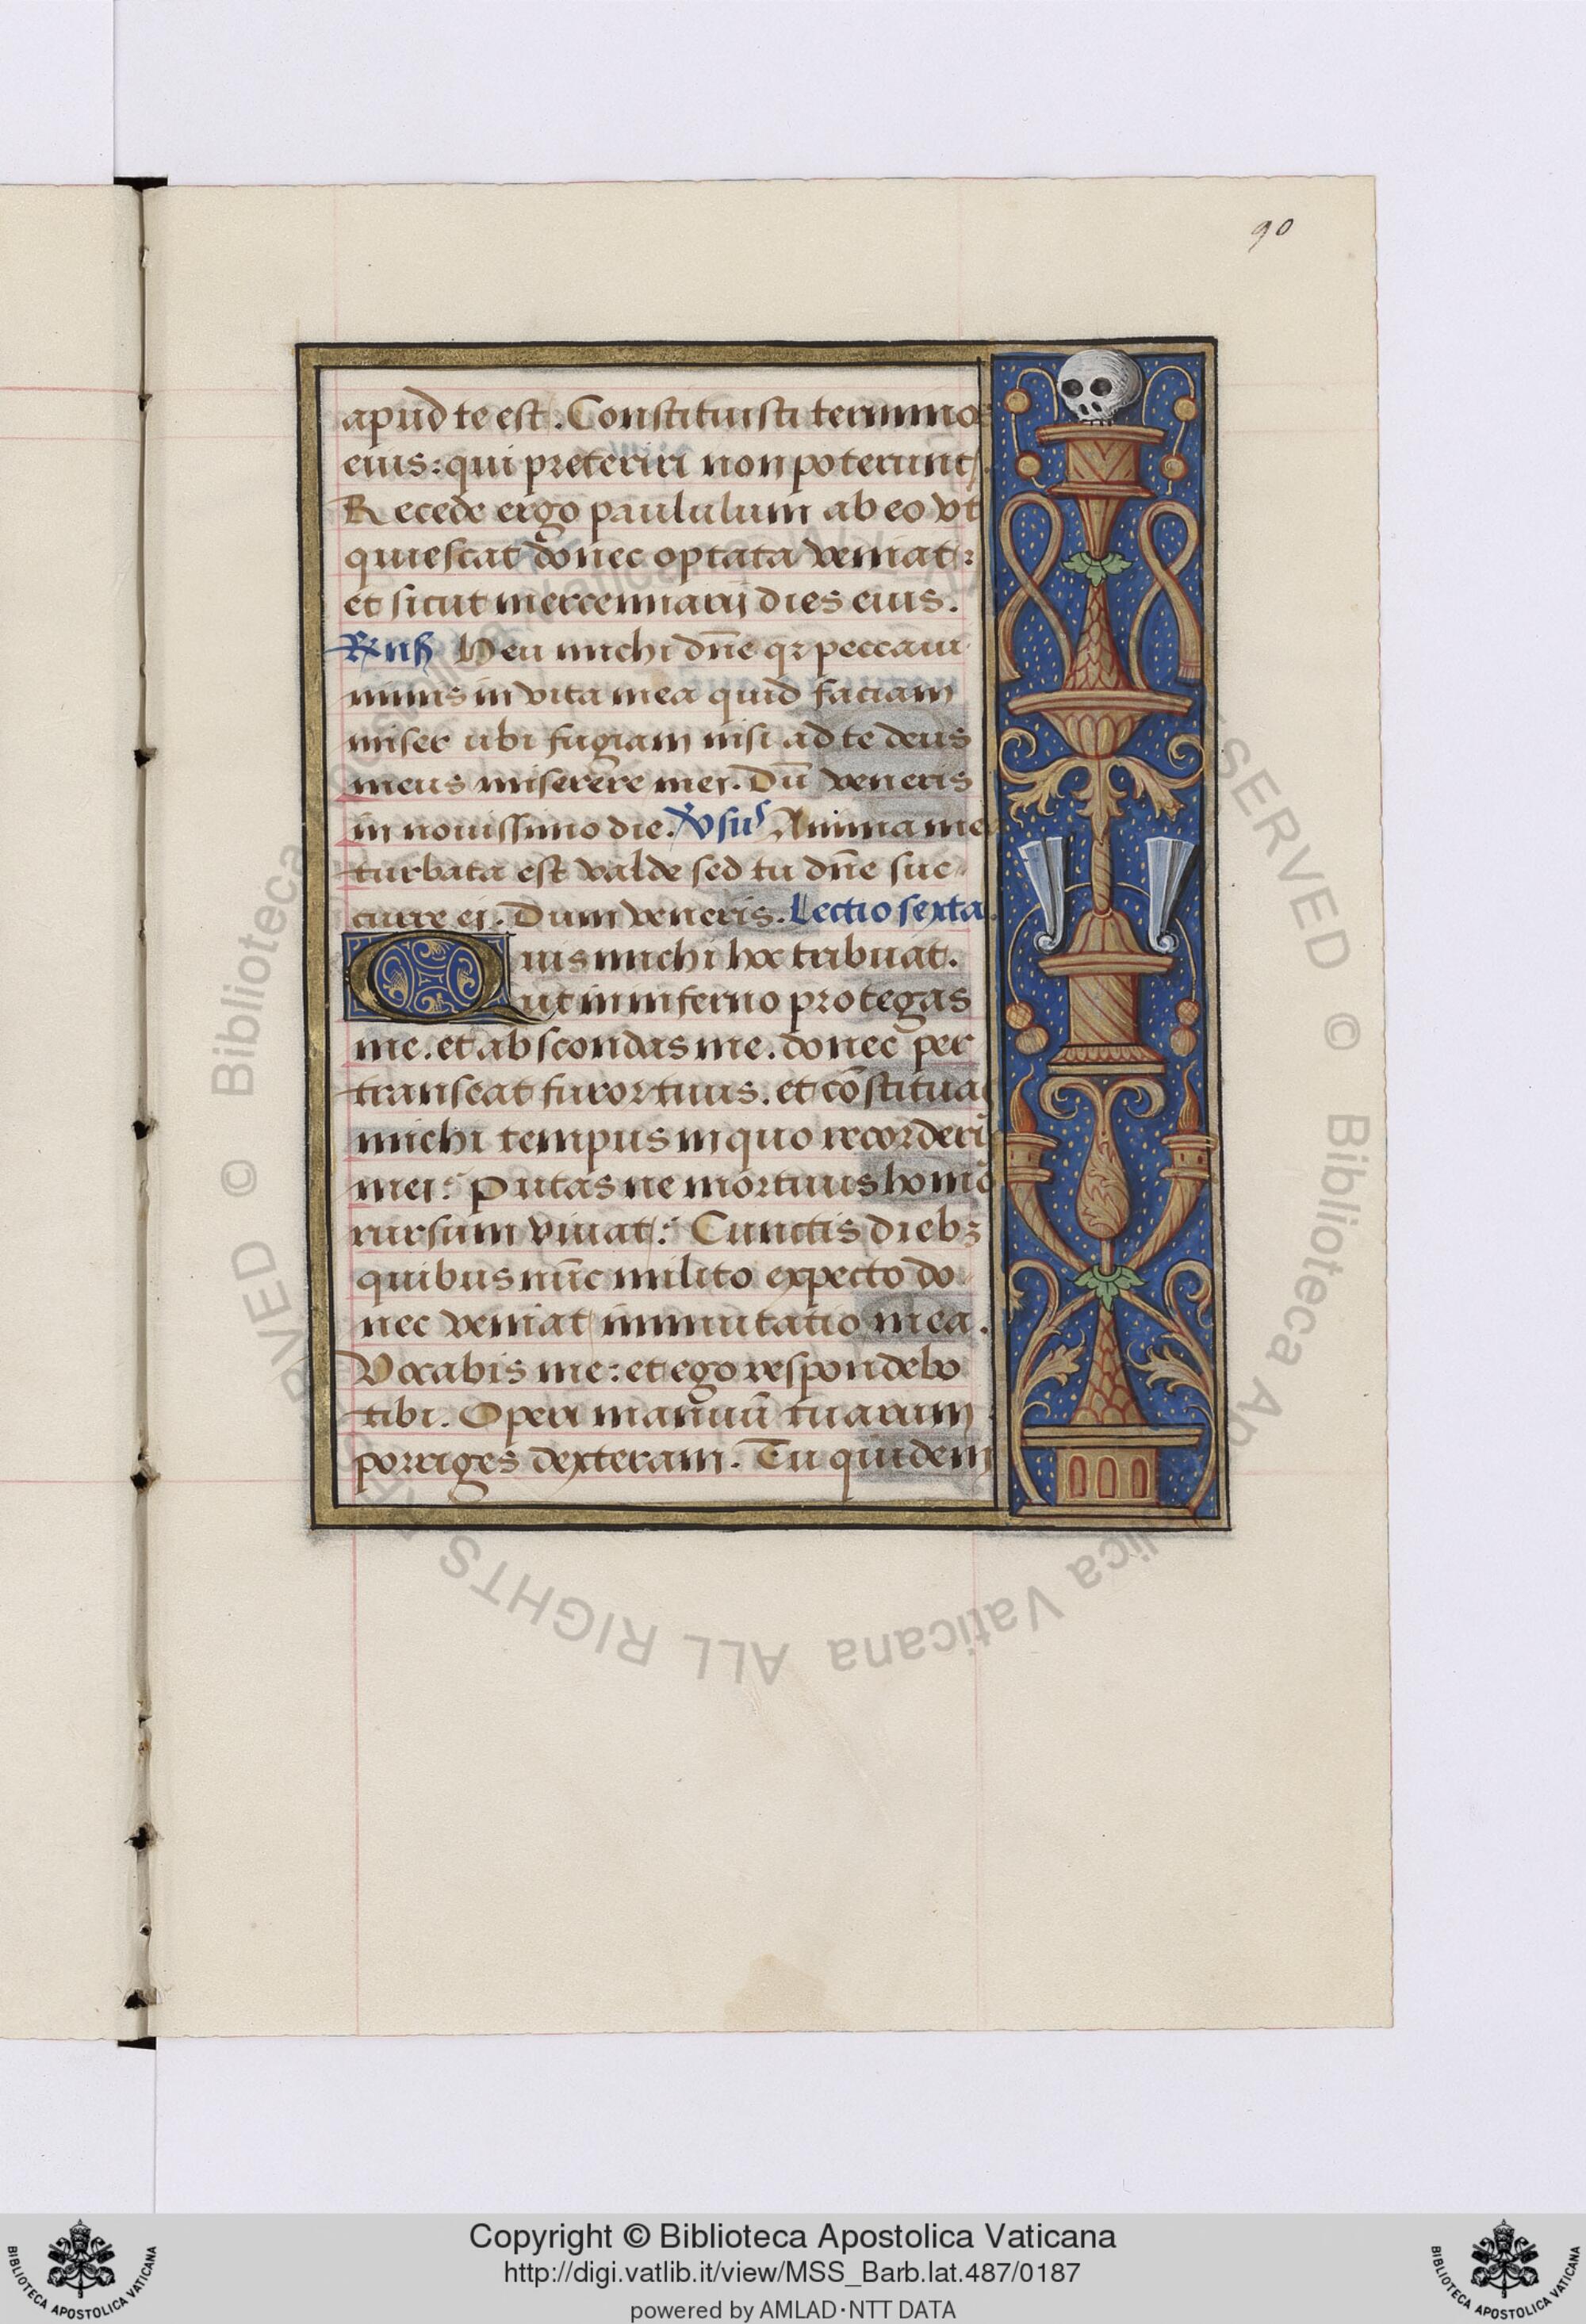 90
apud te est. Constituisti terminos
eius: qui preteriri non poterunt.
Recede ergo paululum ab eo vt
quiescat donec optata veniat:
et sicut mercennarij dies eius.
Heu michi dn̄e qr peccaui
nimis in vita mea quid faciam
miser ubi fugiam nisi ad te deus
meus miserere mei. Dū veneris
in nouissimo die. Anima mea
turbata est valde sed tu dn̄e suc
curre ei. Dum veneris. Lectio sexta.
Quis michi hoc tribuat.
ut in inferno protegas
me. et abscondas me. donec per
transeat furor tuus. et cōstituas
michi tempus in quo recorderis
mei: Putas ne mortuus homo
rursum viuat: Cunctis dieb3
quibus nūc milito expecto do
nec veniat immutatio mea.
Vocabis me: et ego respondebo
tibi. Operi manuū tuarum
porriges dexteram. Tu quidem
© Biblioteca Apostolica Vaticana ALL RIGHTS RESERVED
Copyright © Biblioteca Apostolica Vaticana
http://digi.vatlib.it/view/MSS_Barb.lat.487/0187
powered by AMLAD·NTT DATA
BIBLIOTECA APOSTOLICA VATICANA
BIBLIOTECA APOSTOLICA VATICANA